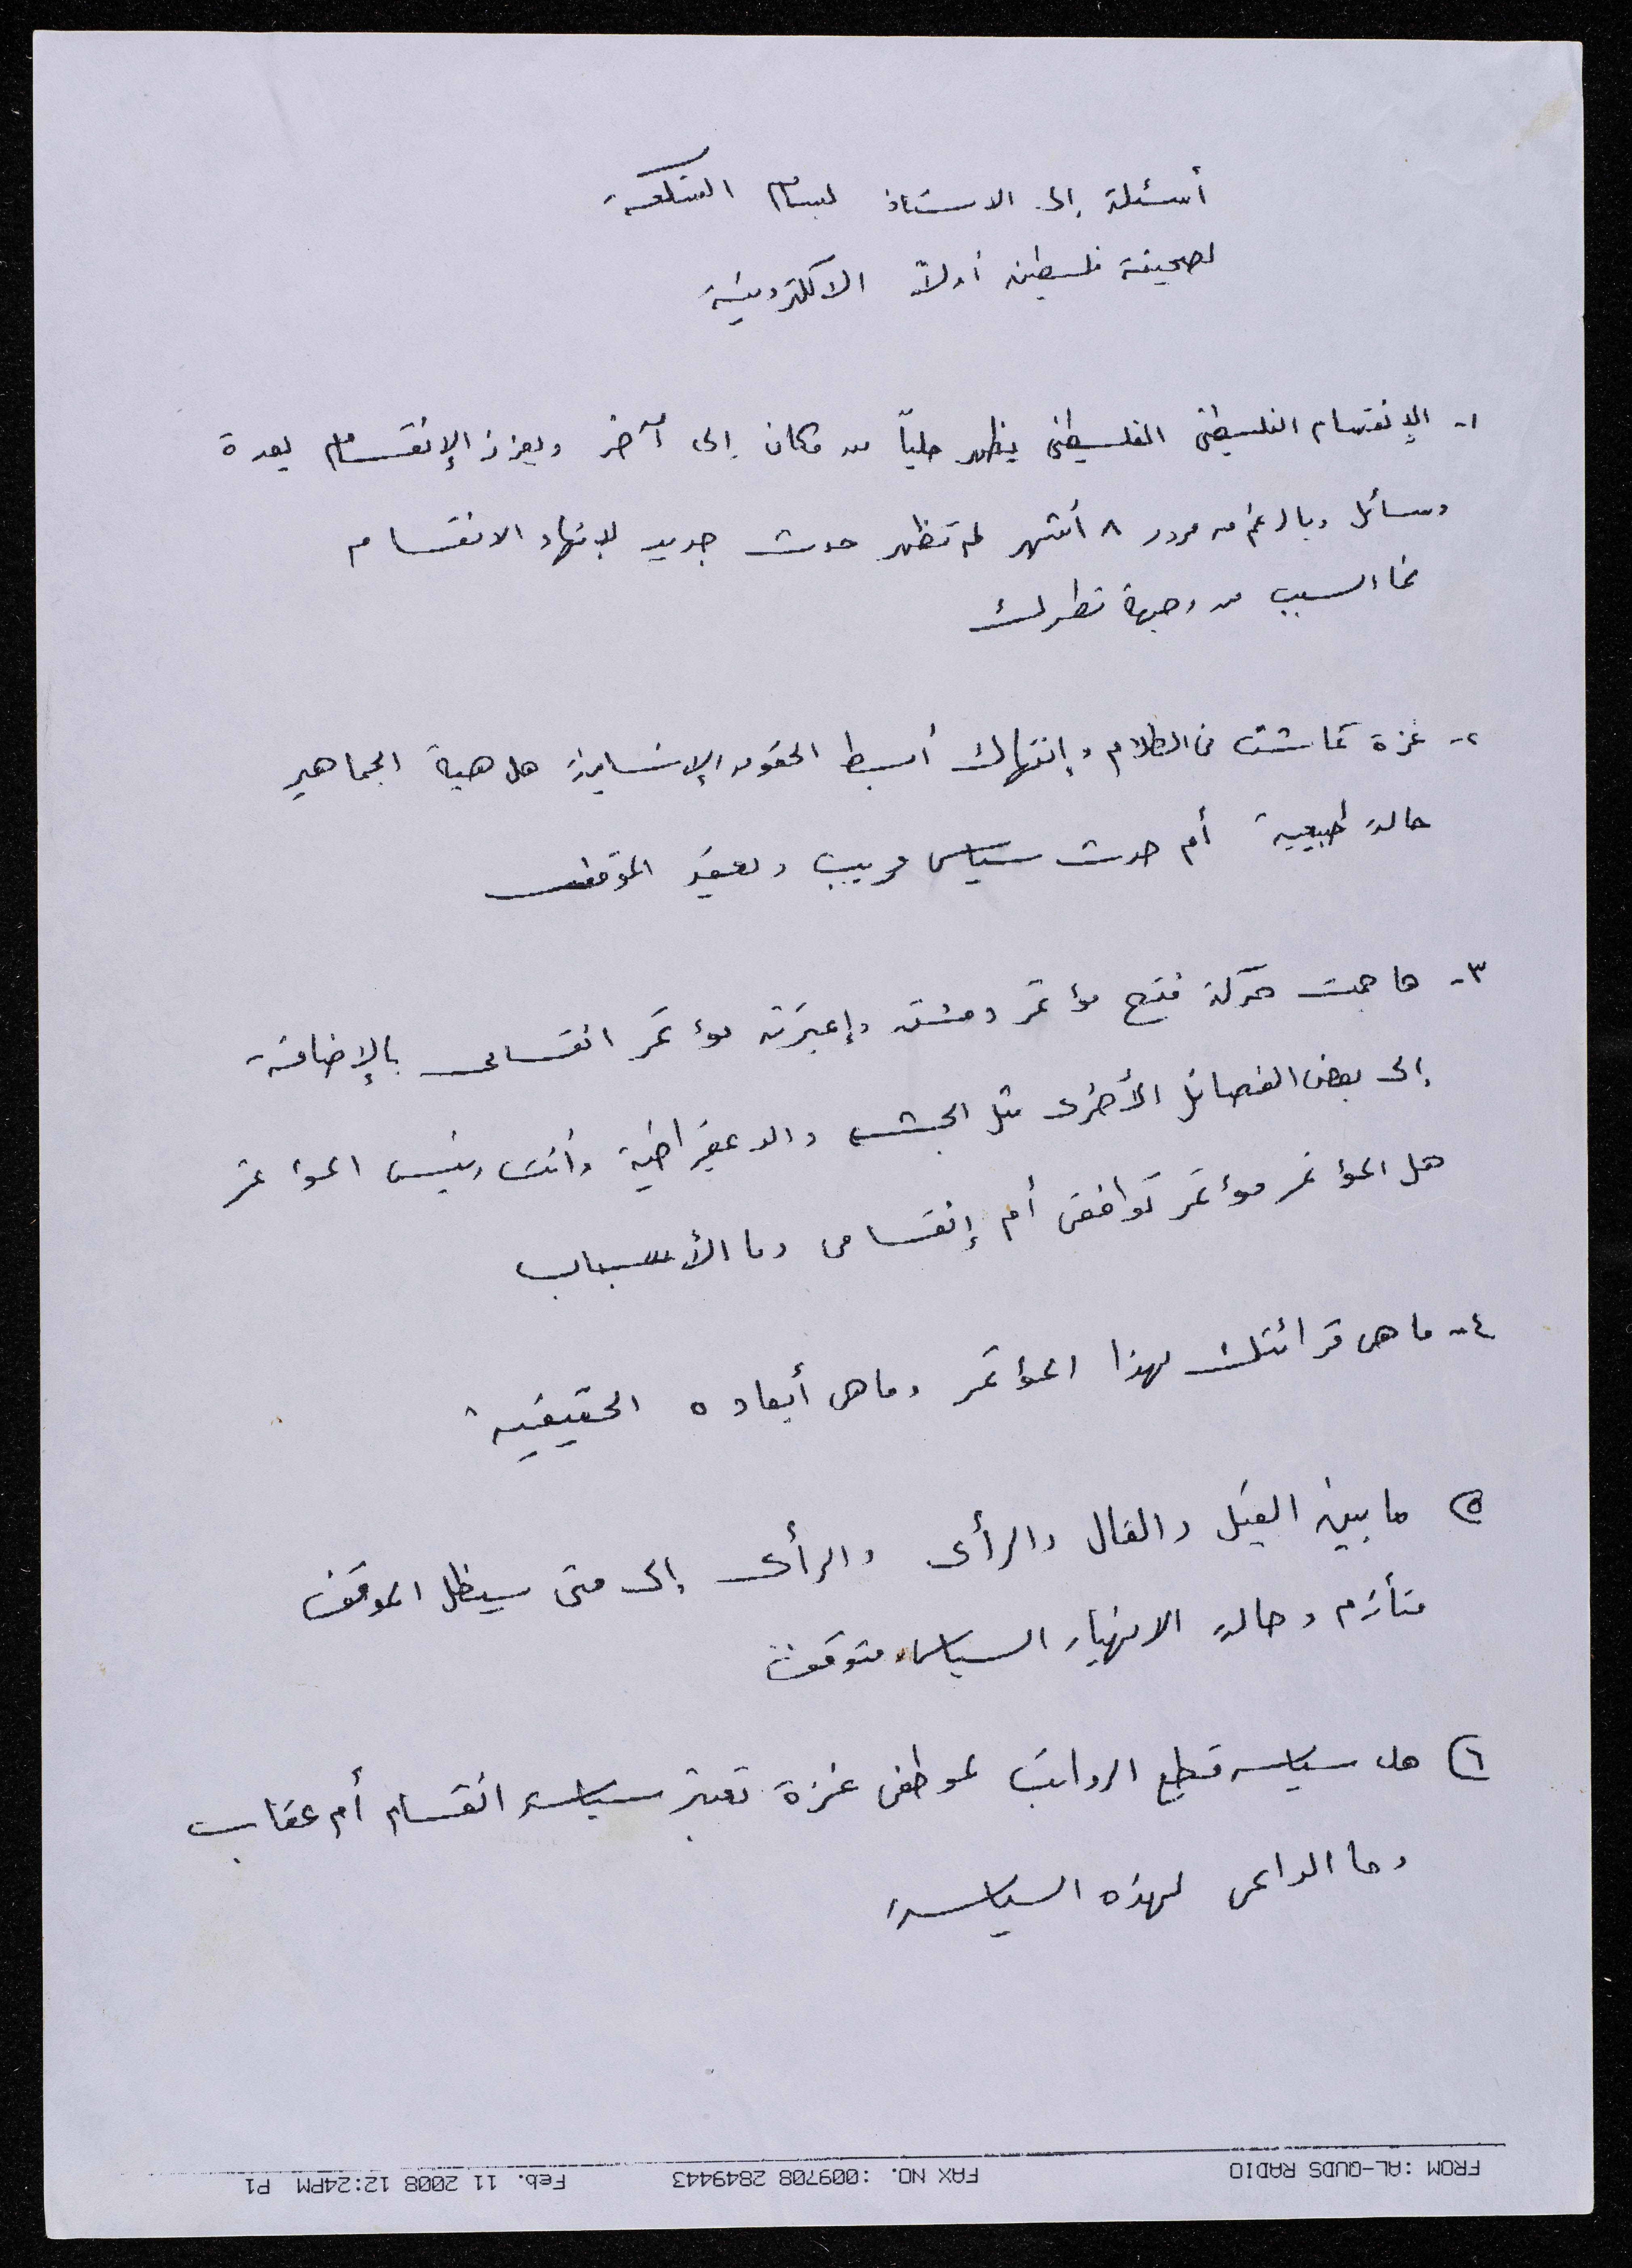 أسئلة إلى الاستاذ بسام الشكعة
لصحيفة فلسطين أولاً الالكترونية
١- الإنقسام الفلسطيني الفلسطيني يظهر جلياً من مكان إلى آخر ويعزز الإنقسام بعدة
وسائل وبالرغم من مرور ٨ أشهر لم تظهر حدث جديد لإنهاء الانقسام
فما السبب من وجهة نظرك
٢- غزة عاشت في الظلام وإنتهاك أبسط الحقوق الإنسانية هل هبة الجماهير
حالة طبيعية أم حدث سياسي مريب وتعقيد الموقف
٣- هاجمت حركة فتح مؤتمر دمشق وإعتبرته مؤتمر انقسامي بالإضافة
إلى بعض الفصائل الأخرى مثل الجبهة والديمقراطية وأنت رئيس المؤتمر
هل المؤتمر مؤتمر توافقي أم إنقسامي وما الأسباب
٤- ما هي قرائتك لهذا المؤتمر وما هي أبعاده الحقيقية
٥) ما بين القيل والقال والرأى والرأى إلى متى سيظل الموقف
متأزم وحالة الانهيار السياسي متوقفة
٦) هل سياسة قطع الرواتب لموظفي غزة تعتبر سياسة انقسام أم عقاب
وما الداعي لهذه السياسة
FROM :AL-QUDS RADIO FAX NO. :009708 2849443 Feb. 11 2008 12:24PM P1